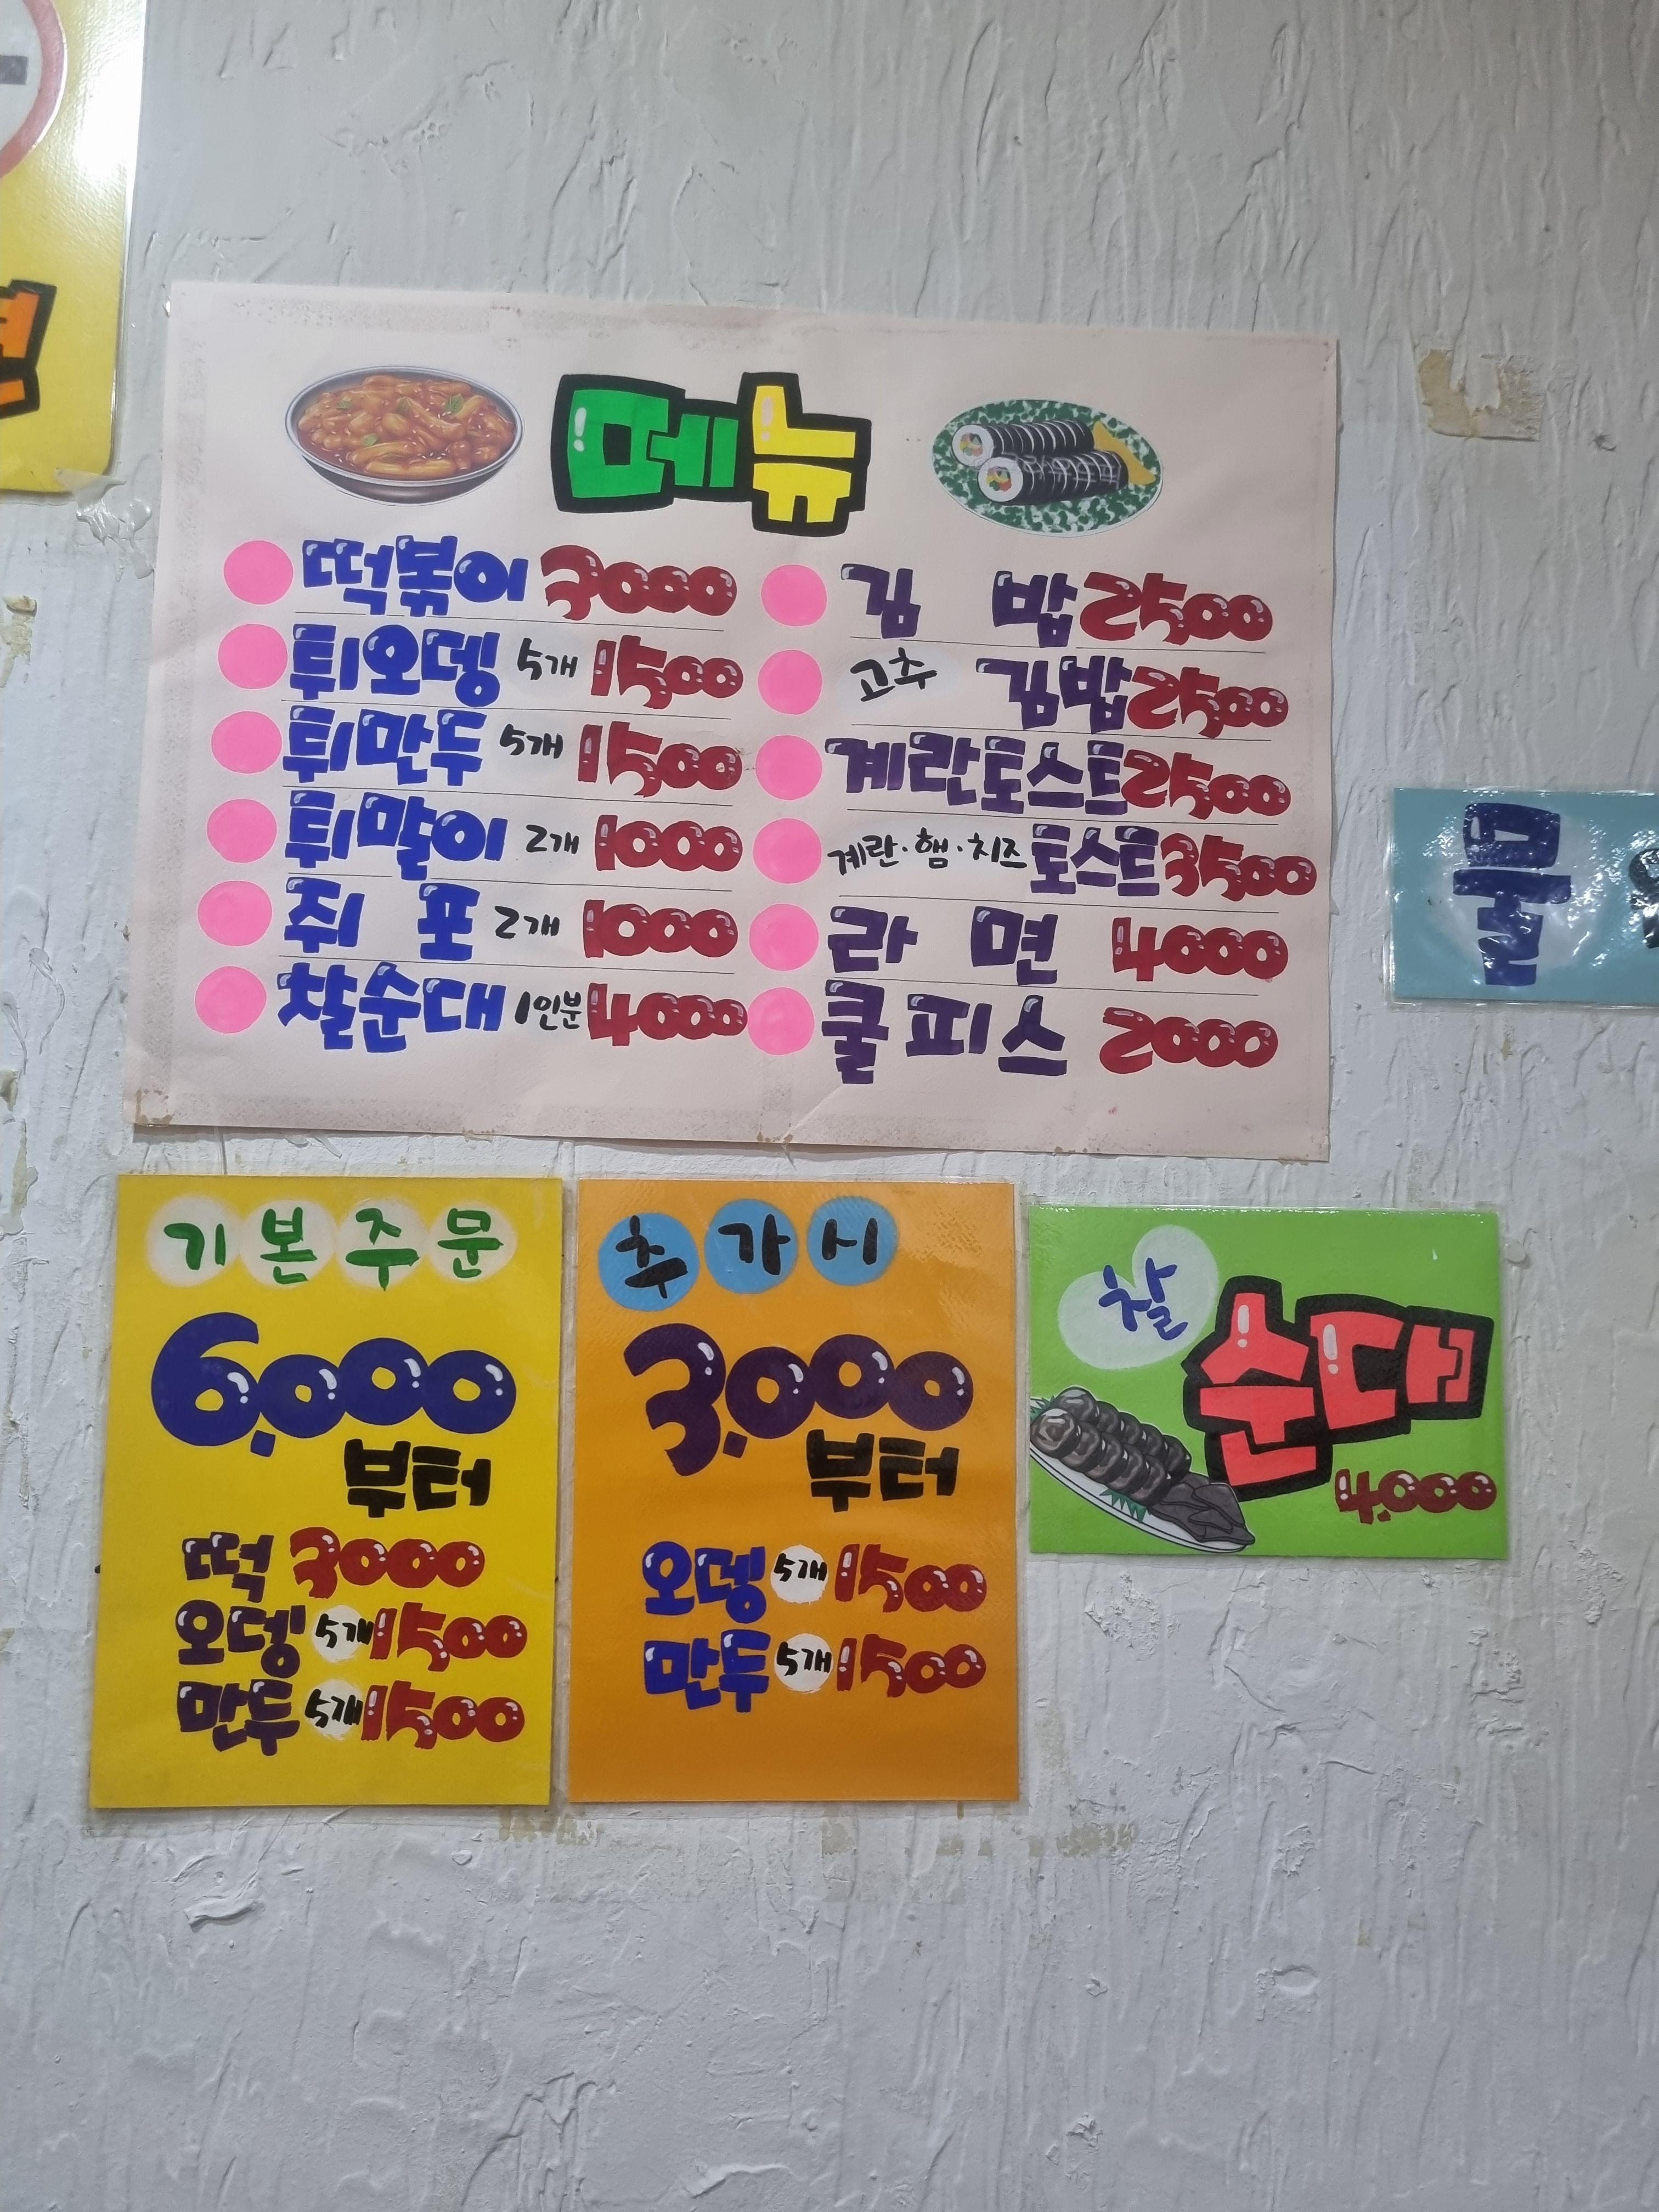 메뉴
떡볶이 3000
튀오뎅 5개 1500
튀만두 5개 1500
튀말이 2개 1000
쥐 포 2개 1000
찰순대 1인분 4000
김 밥 2500
고추 김밥 2500
계란토스트 2500
계란·햄·치즈 토스트 3500
라 면 4000
쿨피스 2000
물
기본주문
6,000
부터
떡 3000
오뎅 5개 1500
만두 5개 1500
추가시
3,000
부터
오뎅 5개 1500
만두 5개 1500
찰
순대
4,000